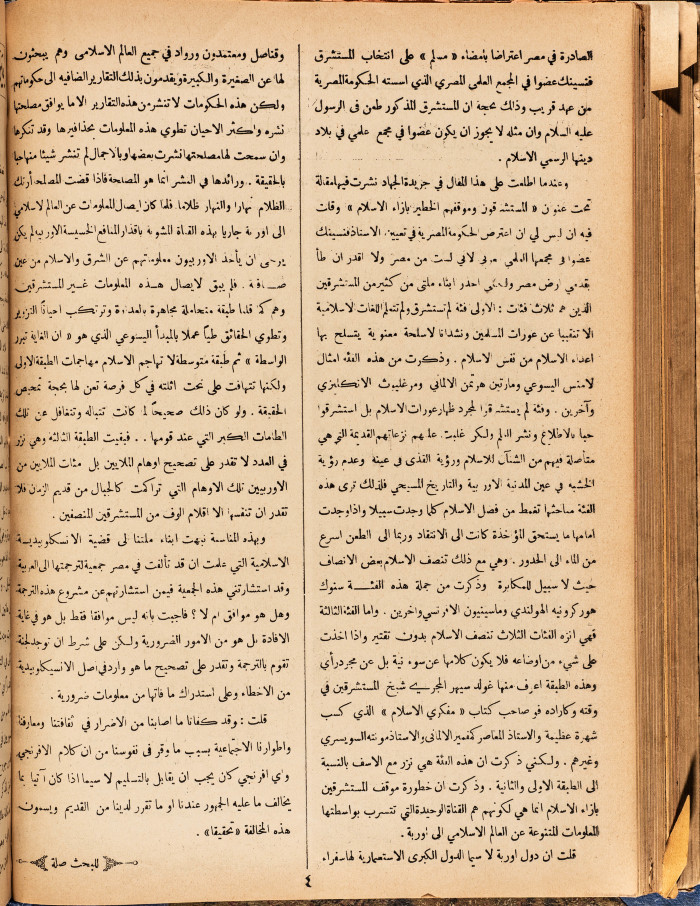 الصادرة في مصر اعتراضا بأمضاء « مسلم » على انتخاب المستشرق
فنسينك عضوا في المجمع العلمي المصري الذي اسسته الحكومة المصرية
من عهد قريب وذلك بحجة ان المستشرق المذكور طعن في الرسول
عليه السلام وان مثله لا يجوز ان يكون عضوا في مجمع علمي في بلاد
دينها الرسمي الاسلام .
وعندما اطلعت على هذا المقال في جريدة الجهاد نشرت فيها مقالة
تحت عنوان « المستشرقون وموقفهم الخطير بازاء الاسلام » وقلت
فيه ان ليس لي ان اعترض الحكومة المصرية في تعيين الاستاذ فنسينك
عضوا في مجمعها العلمي لاني لست من مصر ولا اقدر ان أطأ
بقدمي ارض مصر ولكني احذر ابناء ملتي من كثير من المستشرقين
الذين هم ثلاث فئات : الاولى فئة لم تستشرق ولم تتعلم اللغات الاسلامية
الا تنقيبا عن عورات المسلمين ونشدانا لاسلحة معنوية يتسلح بها
اعداء الاسلام من نفس الاسلام . وذكرت من هذه الفئه امثال
لامنس اليسوعي ومارتين هرتمن الالماني ومرغليوث الانكليزي
وآخرين . وفئة لم يستشرقوا لمجرد اظهار عورات الاسلام بل استشرقوا
حبا بالاطلاع ونشر العلم ولكن غلبت عليهم نزعاتهم القديمة التي هي
متأصلة فيهم من الشنآن للاسلام ورؤية القذى في عينه وعدم رؤية
الخشبه في عين المدنية الاوربية والتاريخ المسيحي فلذلك ترى هذه
الفئة مباحثها تغمط من فضل الاسلام كلما وجدت سبيلا واذا وجدت
امامها ما يستحق المؤاخذة كانت الى الانتقاد وربما الى الطعن اسرع
من الماء الى الحدور . وهي مع ذلك تنصف الاسلام بعض الانصاف
حيث لا سبيل للمكابرة وذكرت من جملة هذه الفئـــة سنوك
هوركرونيه الهولندي وماسينيون الافرنسي واخرين . واما الفئة الثالثة
فهي انزه الفئات الثلاث تنصف الاسلام بدون تقتير واذا اخذت
على شيء من اوضاعه فلا يكون كلامها عن سوء نية بل عن مجرد رأي
وهذه الطبقة اعرف منها غولد سيهر المجري شيخ المستشرقين في
وقته وكاراده فو صاحب كتاب « مفكري الاسلام » الذي كسب
شهرة عظيمة والاستاذ المعاصر كمفمير الالماني والاستاذ مونته السويسري
وغيرهم . ولكنني ذكرت ان هذه الفئة هي نزر مع الاسف بالنسبة
الى الطبقة الاولى والثانية . وذكرت ان خطورة موقف المستشرقين
بازاء الاسلام انما هي لكونهم هم القناة الوحيدة التي تتسرب بواسطتها
المعلومات المتنوعة عن العالم الاسلامي الى اوربة .
قلت ان دول اوربة لا سيما الدول الكبرى الاستعمارية لها سفراء
وقناصل ومعتمدون ورواد في جميع العالم الاسلامي وهم يبحثون
لها عن الصغيرة والكبيرة ويقدمون بذلك التقارير الضافيه الى حكوماتهم
ولكن هذه الحكومات لا تنشر من هذه التقارير الا ما يوافق مصلحتها
نشره واكثر الاحيان تطوي هذه المعلومات بحذافيرها وقد تنكرها
وان سمحت لها مصلحتها نشرت بعضها وبالاجمال لم تنشر شيئا منها حبا
بالحقيقة .. ورائدها في النشر انما هو المصلحة فاذا قضت المصلحة أرتك
الظلام نهارا والنهار ظلاما. فلما كان ايصال المعلومات عن العالم الاسلامي
الى اوربة جاريا بهذه القناة المشوبة باقذار المنافع الخسيسة الاوربية لم يكن
يرجى ان يأخذ الاوربيون معلوماتهم عن الشرق والاسلام من عين
صافية . فلم يبق لايصال هــذه المعلومات غــير المستشرقين
وهم كما قلنا طبقة متحاملة مجاهرة بالعداوة وترتكب احيانا التزوير
وتطوي الحقائق طيّا عملا بالمبدأ اليسوعي الذي هو « ان الغاية تبرر
الواسطة » ثم طبقة متوسطة لا تهاجم الاسلام مهاجمات الطبقة الاولى
ولكنها تتهافت على نحت اثلته في كل فرصة تعن لها بحجة تمحيص
الحقيقة . ولو كان ذلك صحيحاً لما كانت تتباله وتتغافل عن تلك
الطامات الكبر التي عند قومها . . فبقيت الطبقة الثالثه وهي نزر
في العدد لا تقدر على تصحيح اوهام الملايين بل مئات الملايين من
الاوربيين تلك الاوهام التي تراكمت كالجبال من قديم الزمان فلا
تقدر ان تنفسها الا اقلام الوف من المستشرقين المنصفين .
وبهذه المناسبة نبهت ابناء ملتنا الى قضية الانسكلوبيديــة
الاسلامية التي علمت ان قد تألفت في مصر جمعية لترجمتها الى العربية
وقد استشارتني هذه الجمعية فيمن استشارتهم عن مشروع هذه الترجمة
وهل هو موافق ام لا ؟ فاجبت بانه ليس موافقا فقط بل هو في غاية
الافادة بل هو من الامور الضرورية ولكن على شرط ان توجد لجنة
تقوم بالترجمة وتقدر على تصحيح ما هو وارد في اصل الانسيكلوبيدية
من الاخطاء وعلى استدراك ما فاتها من معلومات ضرورية .
قلت : وقد كفانا ما اصابنا من الاضرار في ثقافتنا ومعارفنا
واطوارنا الاجتماعية بسبب ما وقر في نفوسنا من ان كلام الافرنجي
واي افرنجي كان يجب ان يقابل بالتسليم لا سيما اذا كان آتيا بما
يخالف ما عليه الجمهور عندنا او ما تقرر لدينا من القديم ويسمون
هذه المخالفة « تحقيقا» .
للبحث صلة
٤